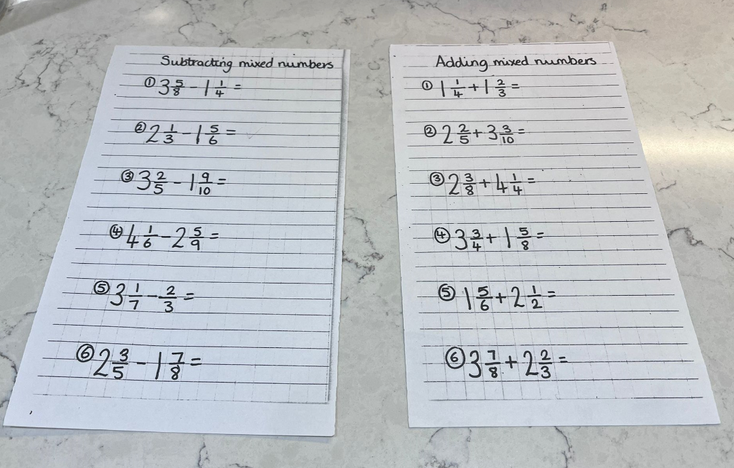 Subtracting mixed numbers
① 3 5/8 - 1 1/4 =
② 2 1/3 - 1 5/6 =
③ 3 2/5 - 1 9/10 =
④ 4 1/6 - 2 5/9 =
⑤ 3 1/7 - 2/3 =
⑥ 2 3/5 - 1 7/8 =
Adding mixed numbers
① 1 1/4 + 1 2/3 =
② 2 2/5 + 3 3/10 =
③ 2 3/8 + 4 1/4 =
④ 3 3/4 + 1 5/8 =
⑤ 1 5/6 + 2 1/2 =
⑥ 3 7/8 + 2 2/3 =